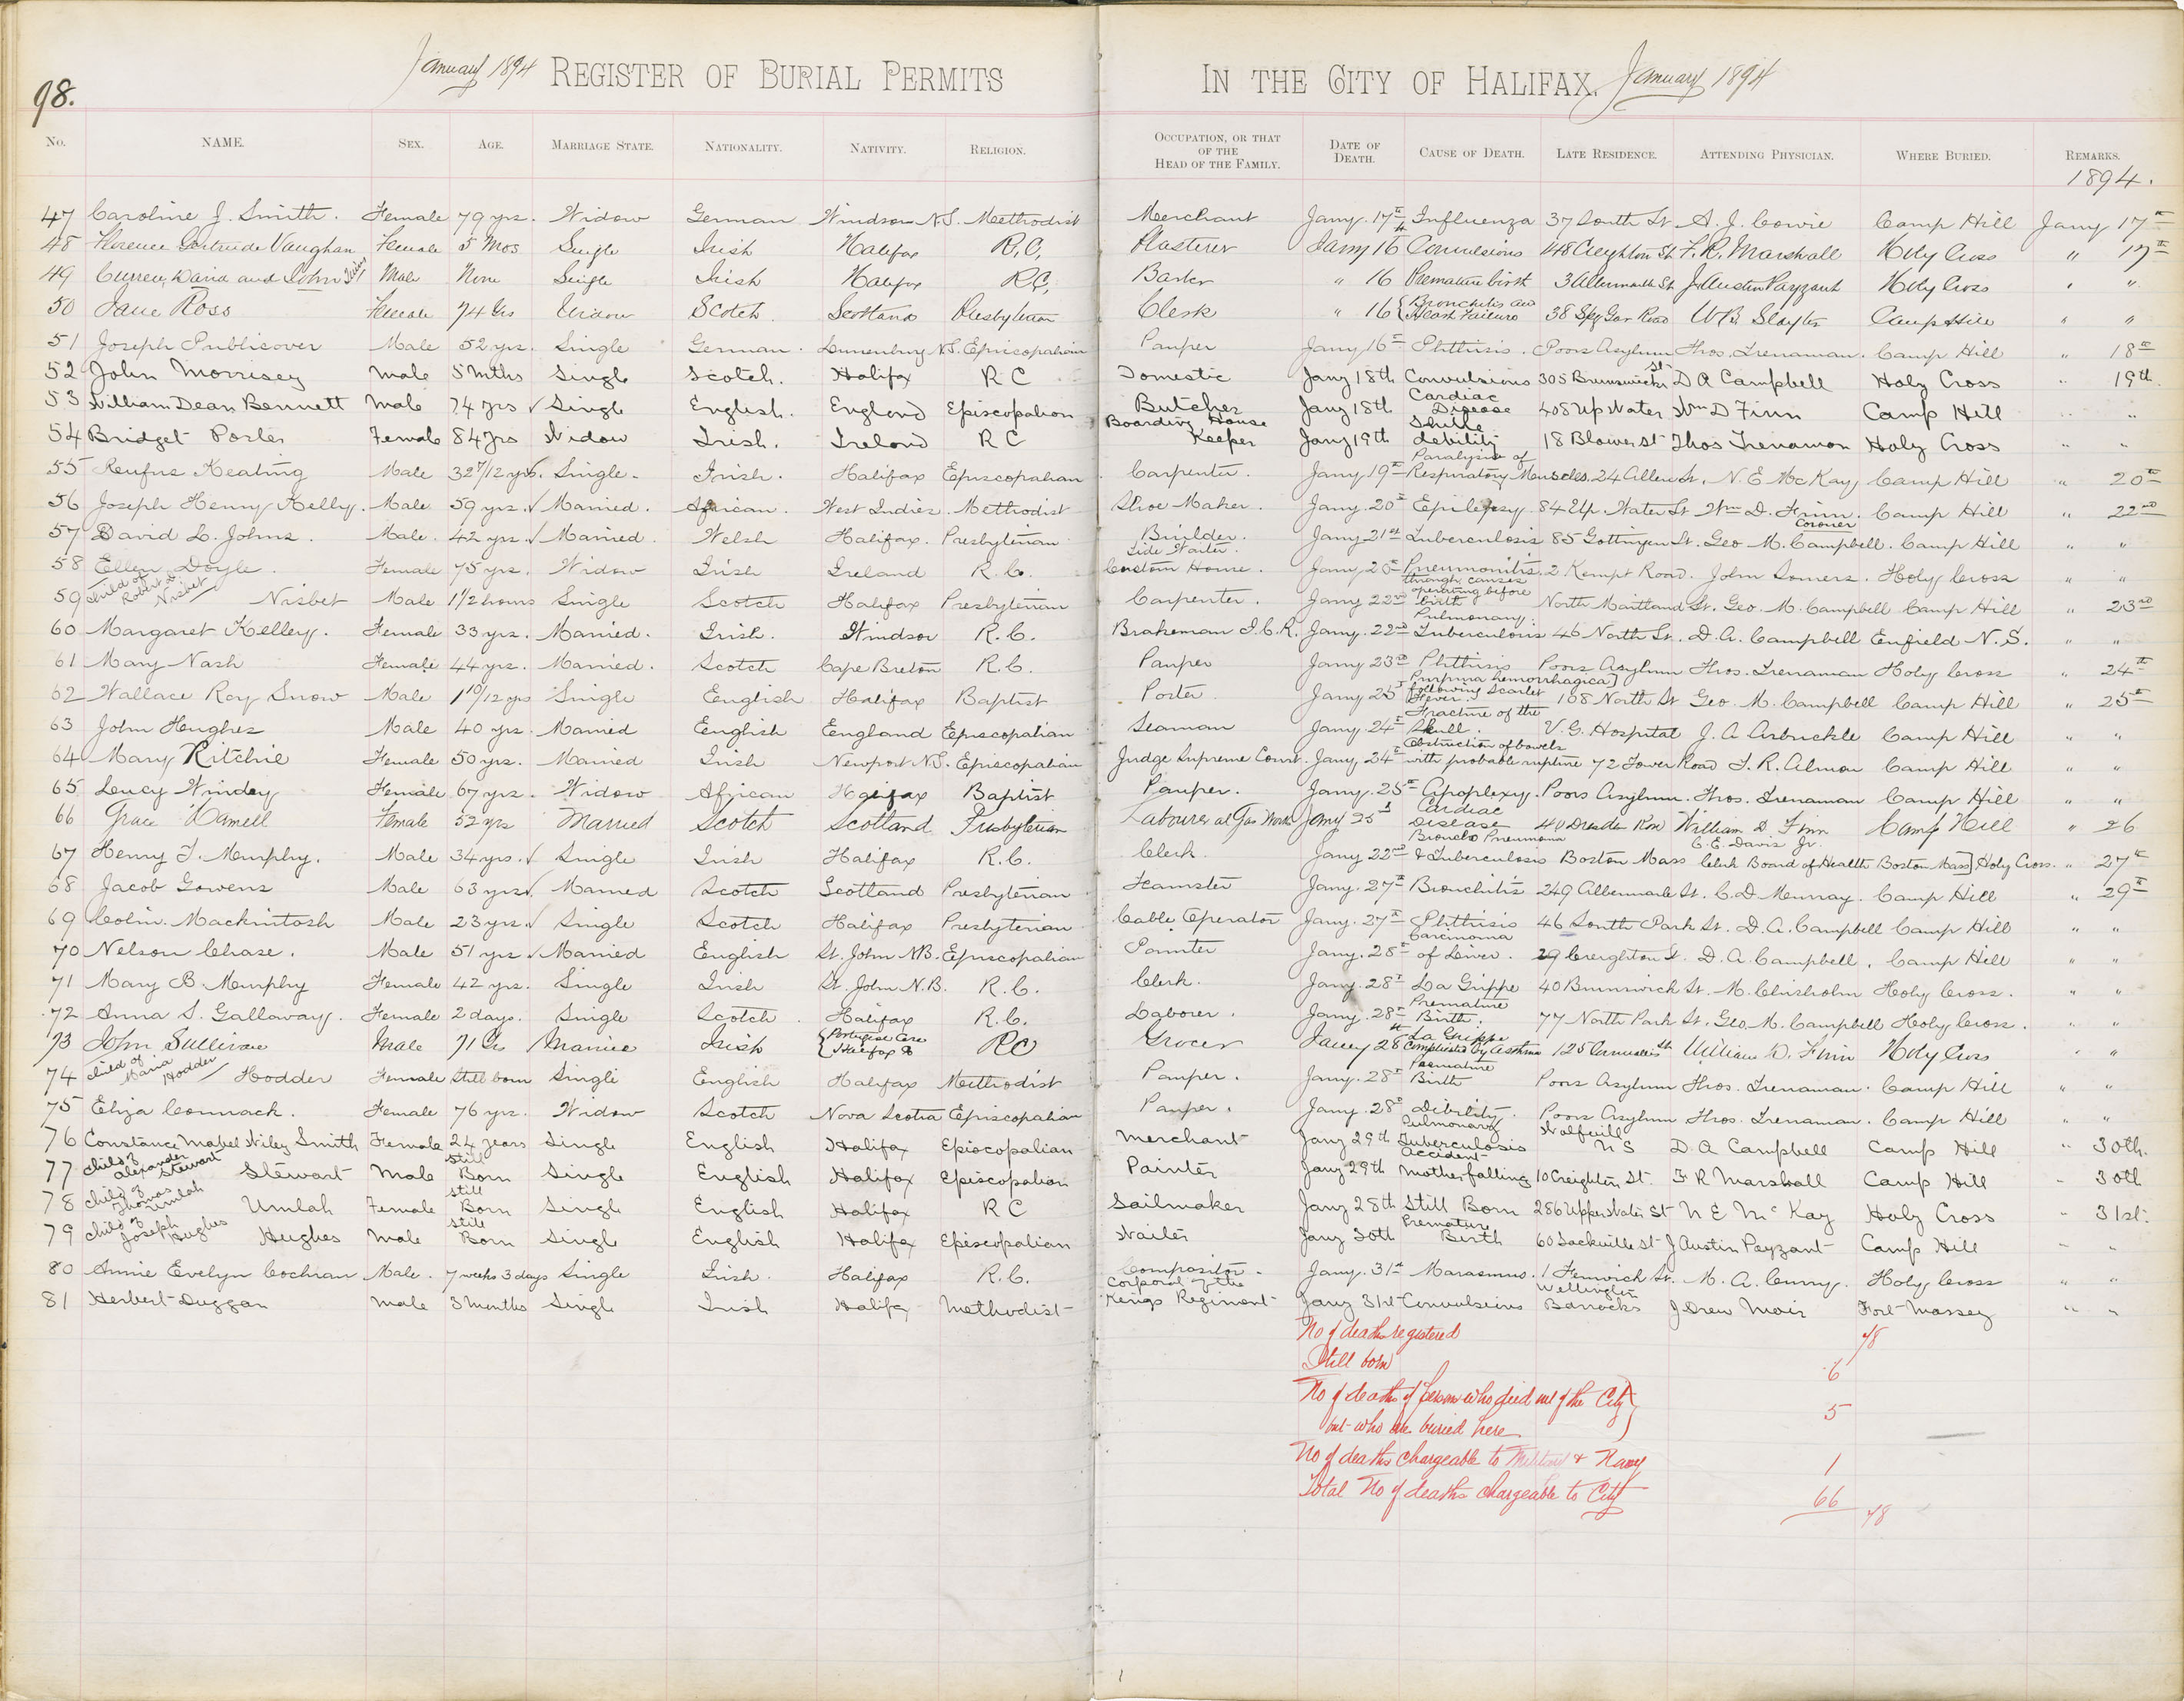 98.
January 1894 REGISTER OF BURIAL PERMITS IN THE CITY OF HALIFAX. January 1894
No. NAME. SEX. AGE. MARRIAGE STATE. NATIONALITY. NATIVITY. RELIGION. OCCUPATION, OR THAT OF THE HEAD OF THE FAMILY. DATE OF DEATH. CAUSE OF DEATH. LATE RESIDENCE. ATTENDING PHYSICIAN. WHERE BURIED. REMARKS.
1894.
47 Caroline J. Smith. Female 79 yrs. Widow German Windsor N.S. Methodist Merchant Jany. 17th Influenza 37 South St A. J. Cowie Camp Hill Jany 17th
48 Florence Gertrude Vaughan Female 5 Mos Single Irish Halifax R.C, Plasterer Jany 16 Convulsions 48 Creighton St F. R. Marshall Holy Cross " 17th
49 Curren, David and John Male None Single Irish Halifax RC, Barber " 16 Premature birth 3 Albermarle St J Austin Payzant Holy Cross " "
50 Jane Ross Female 74 Yrs Widow Scotch Scotland Presbyterian Clerk " 16 { Bronchitis and Heart Failure 38 Spg Gar Road W.B. Slayter Camp Hill " "
51 Joseph Publicover Male 52 yrs. Single German. Lunenburg N.S. Episcopalian Pauper Jany 16th Phthisis. Poors Asylum Thos. Trenaman. Camp Hill " 18th
52 John Morrisey Male 5 mths Single Scotch. Halifax R C Domestic Jany 18th Convulsions 305 Brunswick St D A Campbell Holy Cross " 19th
53 William Dean Bennett Male 74 yrs √ Single English. England Episcopalian Butcher Jany 18th Cardiac Disease 408 Up Water Wm D Finn Camp Hill " "
54 Bridget Porter Female 84 yrs Widow Irish. Ireland R C Boarding House Keeper Jany 19th Senile debility 18 Blower St Thos Trenaman Holy Cross " "
55 Rufus Keating Male 32 7/12 yrs. Single. Irish. Halifax Episcopalian Carpenter. Jany. 19th Paralysis of Respiratory Muscles. 24 Allen St. N. E McKay Camp Hill " 20th
56 Joseph Henry Kelly. Male 59 yrs. √ Married. African. West Indies. Methodist Shoe Maker. Jany. 20th Epilepsy 84 Up. Water St Wm D. Finn. Camp Hill " 22nd
57 David L. Johns. Male. 42 yrs. √ Married. Welsh Halifax. Presbyterian Builder. Jany 21st Tuberculosis 85 Gottingen St. Geo M. Campbell. Coroner Camp Hill " "
58 Ellen Doyle. Female 75 yrs. Widow Irish Ireland R. C. Tide Waiter. Custom House. Jany. 20th Pneumonitis. 2 Kempt Road. John Somers. Holy Cross " "
59 child of Robert Nisbet Nisbet Male 1 1/2 hours Single Scotch Halifax Presbyterian Carpenter. Jany 22nd through causes operating before birth North Maitland St. Geo. M. Campbell Camp Hill " 23rd
60 Margaret Kelley. Female 33 yrs. Married. Irish. Windsor R. C. Brakeman I.C.R. Jany. 22nd Pulmonary. Tuberculosis 46 North St. D. A. Campbell Enfield N. S. " "
61 Mary Nash Female 44 yrs. Married. Scotch Cape Breton R. C. Pauper Jany 23rd Phthisis Poors Asylum Thos. Trenaman Holy Cross " 24th
62 Wallace Roy Snow Male 1 10/12 yrs Single English Halifax Baptist Porter Jany 25th Purpura hemorrhagica following Scarlet Fever. 168 North St Geo. M. Campbell Camp Hill " 25th
63 John Hughes Male 40 yrs. Married English England Episcopalian Seaman Jany. 24th Fracture of the Skull. V. G. Hospital J. A Arbuckle Camp Hill " "
64 Mary Ritchie Female 50 yrs. Married Irish Newport N.S. Episcopalian Judge Supreme Court. Jany. 24th Obstruction of bowels with probable rupture 72 Tower Road T. R. Almon Camp Hill " "
65 Lucy Winday Female 67 yrs. Widow African Halifax Baptist Pauper. Jany. 25th Apoplexy. Poors Asylum. Thos. Trenaman Camp Hill " "
66 Grace Female 52 yrs Married Scotch Scotland Presbyterian Labourer at Gas Works Jany 25th Cardiac Disease 40 Dresden Row William D. Finn Camp Hill " 26
67 Henry T. Murphy. Male 34 yrs. √ Single Irish Halifax R. C. Clerk Jany 22nd Broncho Pneumonia & Tuberculosis Boston Mass C. E. Davis Jr. Clerk Board of Health Boston Mass] Holy Cross. " 27th
68 Jacob Gowens Male 63 yrs √ Married Scotch Scotland Presbyterian Teamster Jany. 27th Bronchitis 249 Albermarle St. C. D. Murray. Camp Hill " 29th
69 Colin. Mackintosh Male 23 yrs √ Single Scotch Halifax Presbyterian Cable Operator Jany. 27th Phthisis 46 South Park St. D. A. Campbell Camp Hill " "
70 Nelson Chase. Male 51 yrs √ Married English St. John N.B. Episcopalian Painter Jany. 28th Carcinoma of Liver. 29 Creighton St. D. A. Campbell. Camp Hill " "
71 Mary B. Murphy Female 42 yrs. Single Irish St. John N. B. R. C. Clerk. Jany. 28th La Grippe 40 Brunswick St. M. Chisholm Holy Cross. " "
72 Anna S. Galloway. Female 2 days. Single Scotch Halifax R. C. Laborer. Jany. 28th Premature Birth. 77 North Park St. Geo. M. Campbell Holy Cross. " "
73 John Sullivan Male 71 Yr Married Irish { Portugese Cove Halifax Co RC Grocer Jany 28th La Grippe complicated by asthma 125 Cornwallis St William D. Finn Holy Cross " "
74 child of Maria Hodder Hodder Female Still born Single English Halifax Methodist Pauper. Jany. 28th Premature Birth Poors Asylum Thos. Trenaman. Camp Hill " "
75 Eliza Cormack. Female 76 yrs. Widow Scotch Nova Scotia Episcopalian Pauper. Jany. 28th Debility. Poors Asylum Thos. Trenaman. Camp Hill " "
76 Constance Mabel Wiley Smith Female 24 years Single English Halifax Episcopalian Merchant Jany 29th Pulmonary Tuberculosis Wolfville N S D A Campbell Camp Hill " 30th.
77 child of Alexander Stewart Stewart Male Still Born Single English Halifax Episcopalian Painter Jany 29th Accident Mother falling 10 Creighton St. F R Marshall Camp Hill " 30th
78 child of Thomas Umlah Umlah Female Still Born Single English Halifax R C Sailmaker Jany 28th Still Born 286 Upper Water St N E McKay Holy Cross " 31st.
79 child of Joseph Hughes Hughes Male Still Born Single English Halifax Episcopalian Waiter Jany 30th Premature Birth 60 Sackville St J Austin Payzant Camp Hill " "
80 Annie Evelyn Cochran Male. 7 weeks 3 days Single Irish. Halifax R. C. Compositor. Jany. 31st Marasmus. 1 Fenwick St. M. A. Curry. Holy Cross " "
81 Herbert Duggan Male 3 months Single Irish Halifax Methodist Corporal of the Kings Regiment Jany 31st Convulsions Wellington Barracks J Drew Moir Fort Massey " "
No of deaths registered 78
Still born 6
No of deaths of persons who died out of the City
but who are buried here 5
No of deaths chargeable to Military & Navy 1
Total No of deaths chargeable to City 66 78